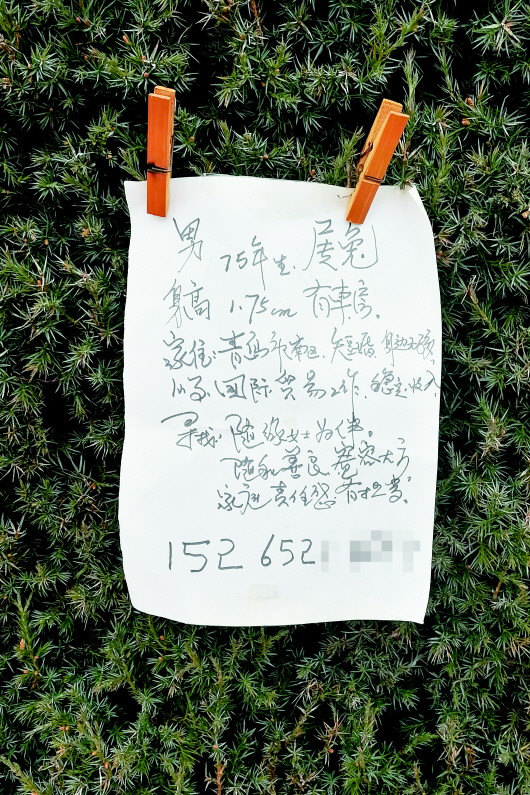 男 75年生. 属兔
身高 1.75cm 有車房.
家住: 青岛市南区. 短婚 身边无孩
从事国际贸易工作. 稳定收入
寻找: 随缘女士为伴。
随和善良宽容大方
家庭责任感 有担当.
152 652